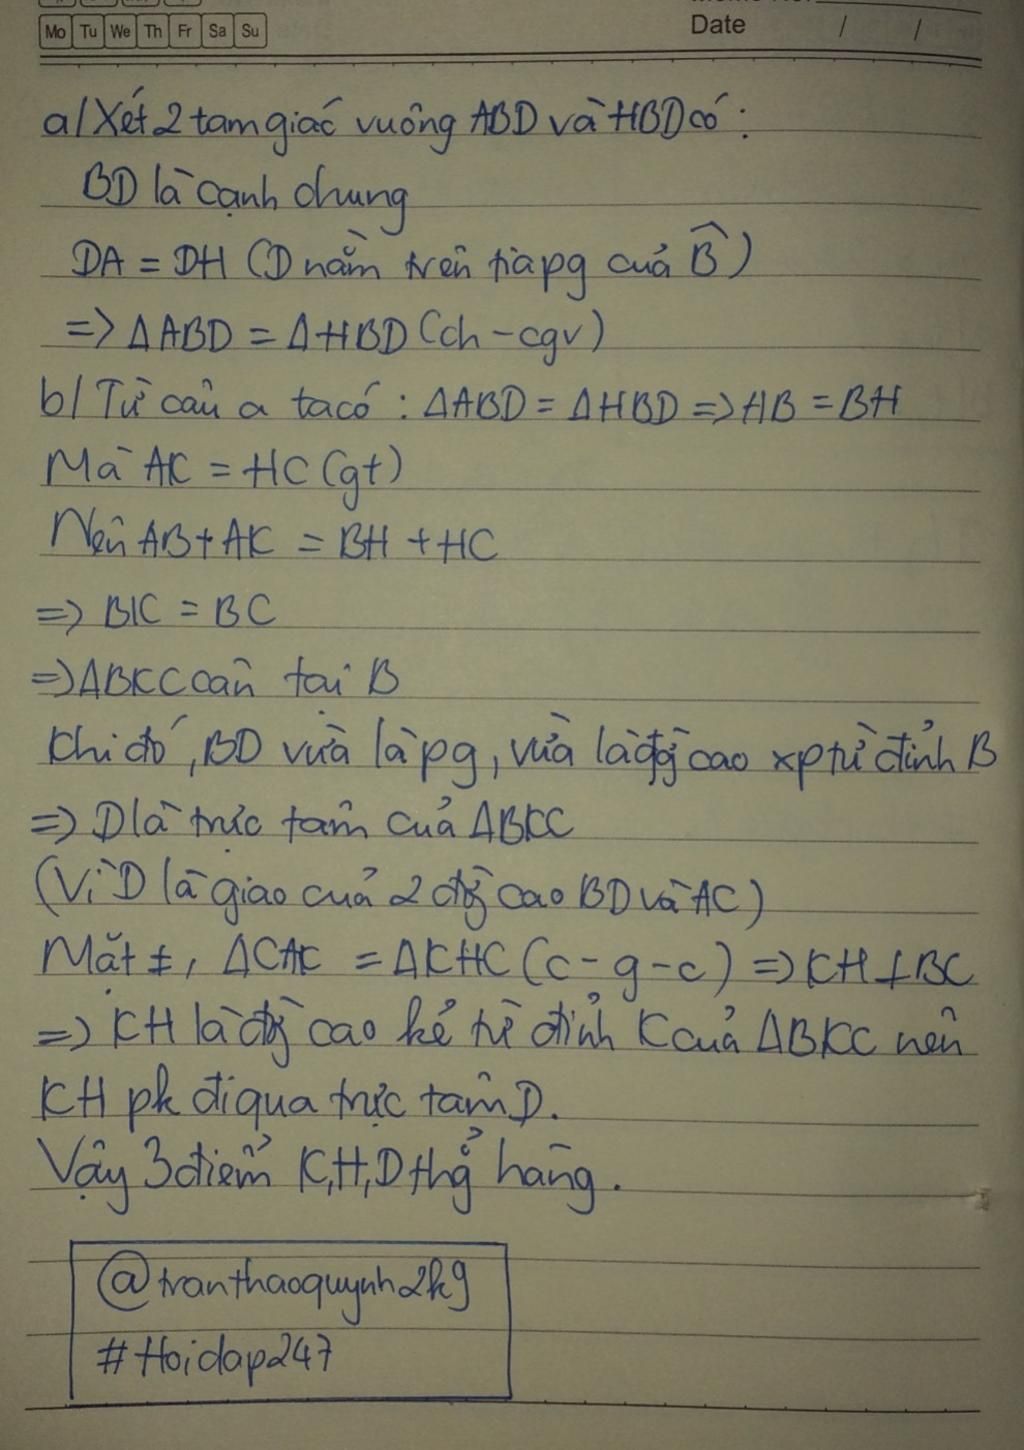 Mo Tu We Th Fr Sa Su
Date / /
a/ Xét 2 tam giác vuông ABD và HBD có :
BD là cạnh chung
DA = DH (D nằm trên tia pg của B̂)
=> ΔABD = ΔHBD (ch - cgv)
b/ Từ câu a ta có : ΔABD = ΔHBD => AB = BH
Mà AK = HC (gt)
Nên AB + AK = BH + HC
=> BK = BC
=> ΔBKC cân tại B
Khi đó, BD vừa là pg, vừa là đg cao xp từ đỉnh B
=> D là trực tâm của ΔBKC
(Vì D là giao của 2 đg cao BD và AC)
Mặt ≠, ΔCAK = ΔKHC (c - g - c) => KH ⊥ BC
=> KH là đg cao kẻ từ đỉnh K của ΔBKC nên
KH pk đi qua trực tâm D.
Vậy 3 điểm K, H, D thẳg hàng.
@tranthaoquynh2k9
#Hoidap247